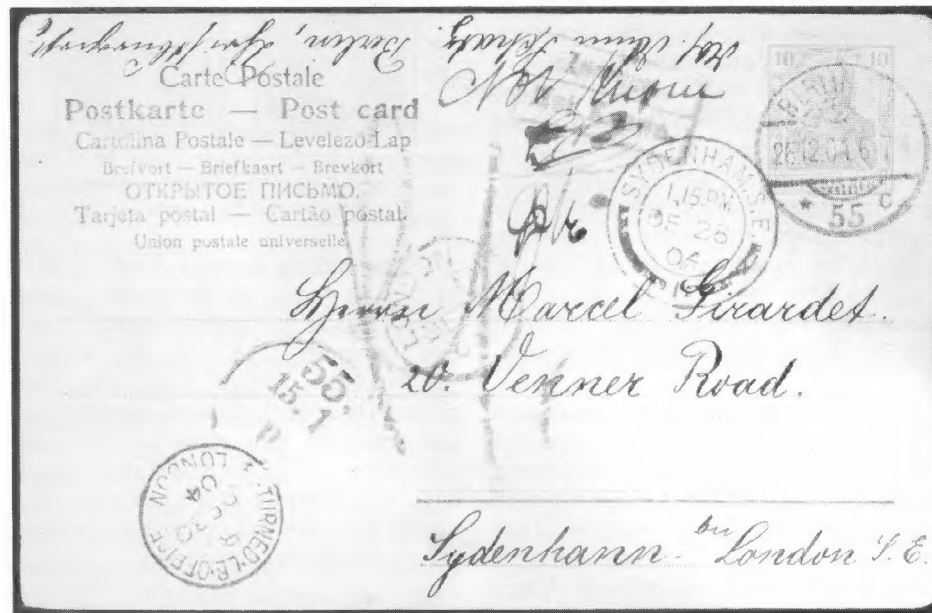 Berlin,
Carte Postale
Postkarte — Post card
Cartolina Postale — Levelező-Lap
Brefvort — Briefkaart — Brevkort
ОТКРЫТОЕ ПИСЬМО.
Tarjeta postal — Cartão postal.
Union postale universelle.
Not Known
10 10
BERLIN
26.12.04. 6
* 55 c
SYDENHAM.S.E
1.15.PM
DE 28
04
Herrn Marcel Girardet.
20. Venner Road.
55.
15.1
RETURNED LR OFFICE
LONDON
DE 30
04
Sydenhann bei London S. E.